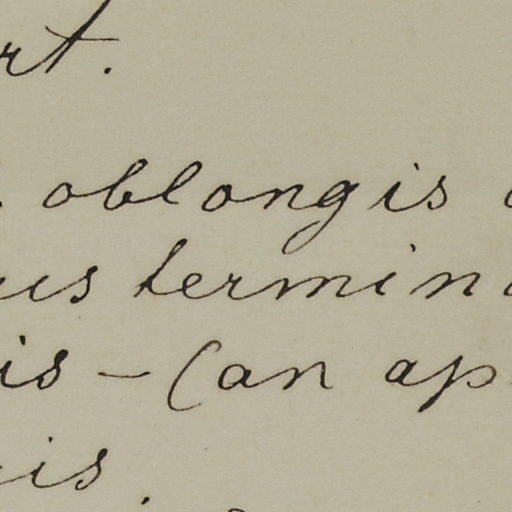 rt.
oblongis
us termin
is – (an ap
is.